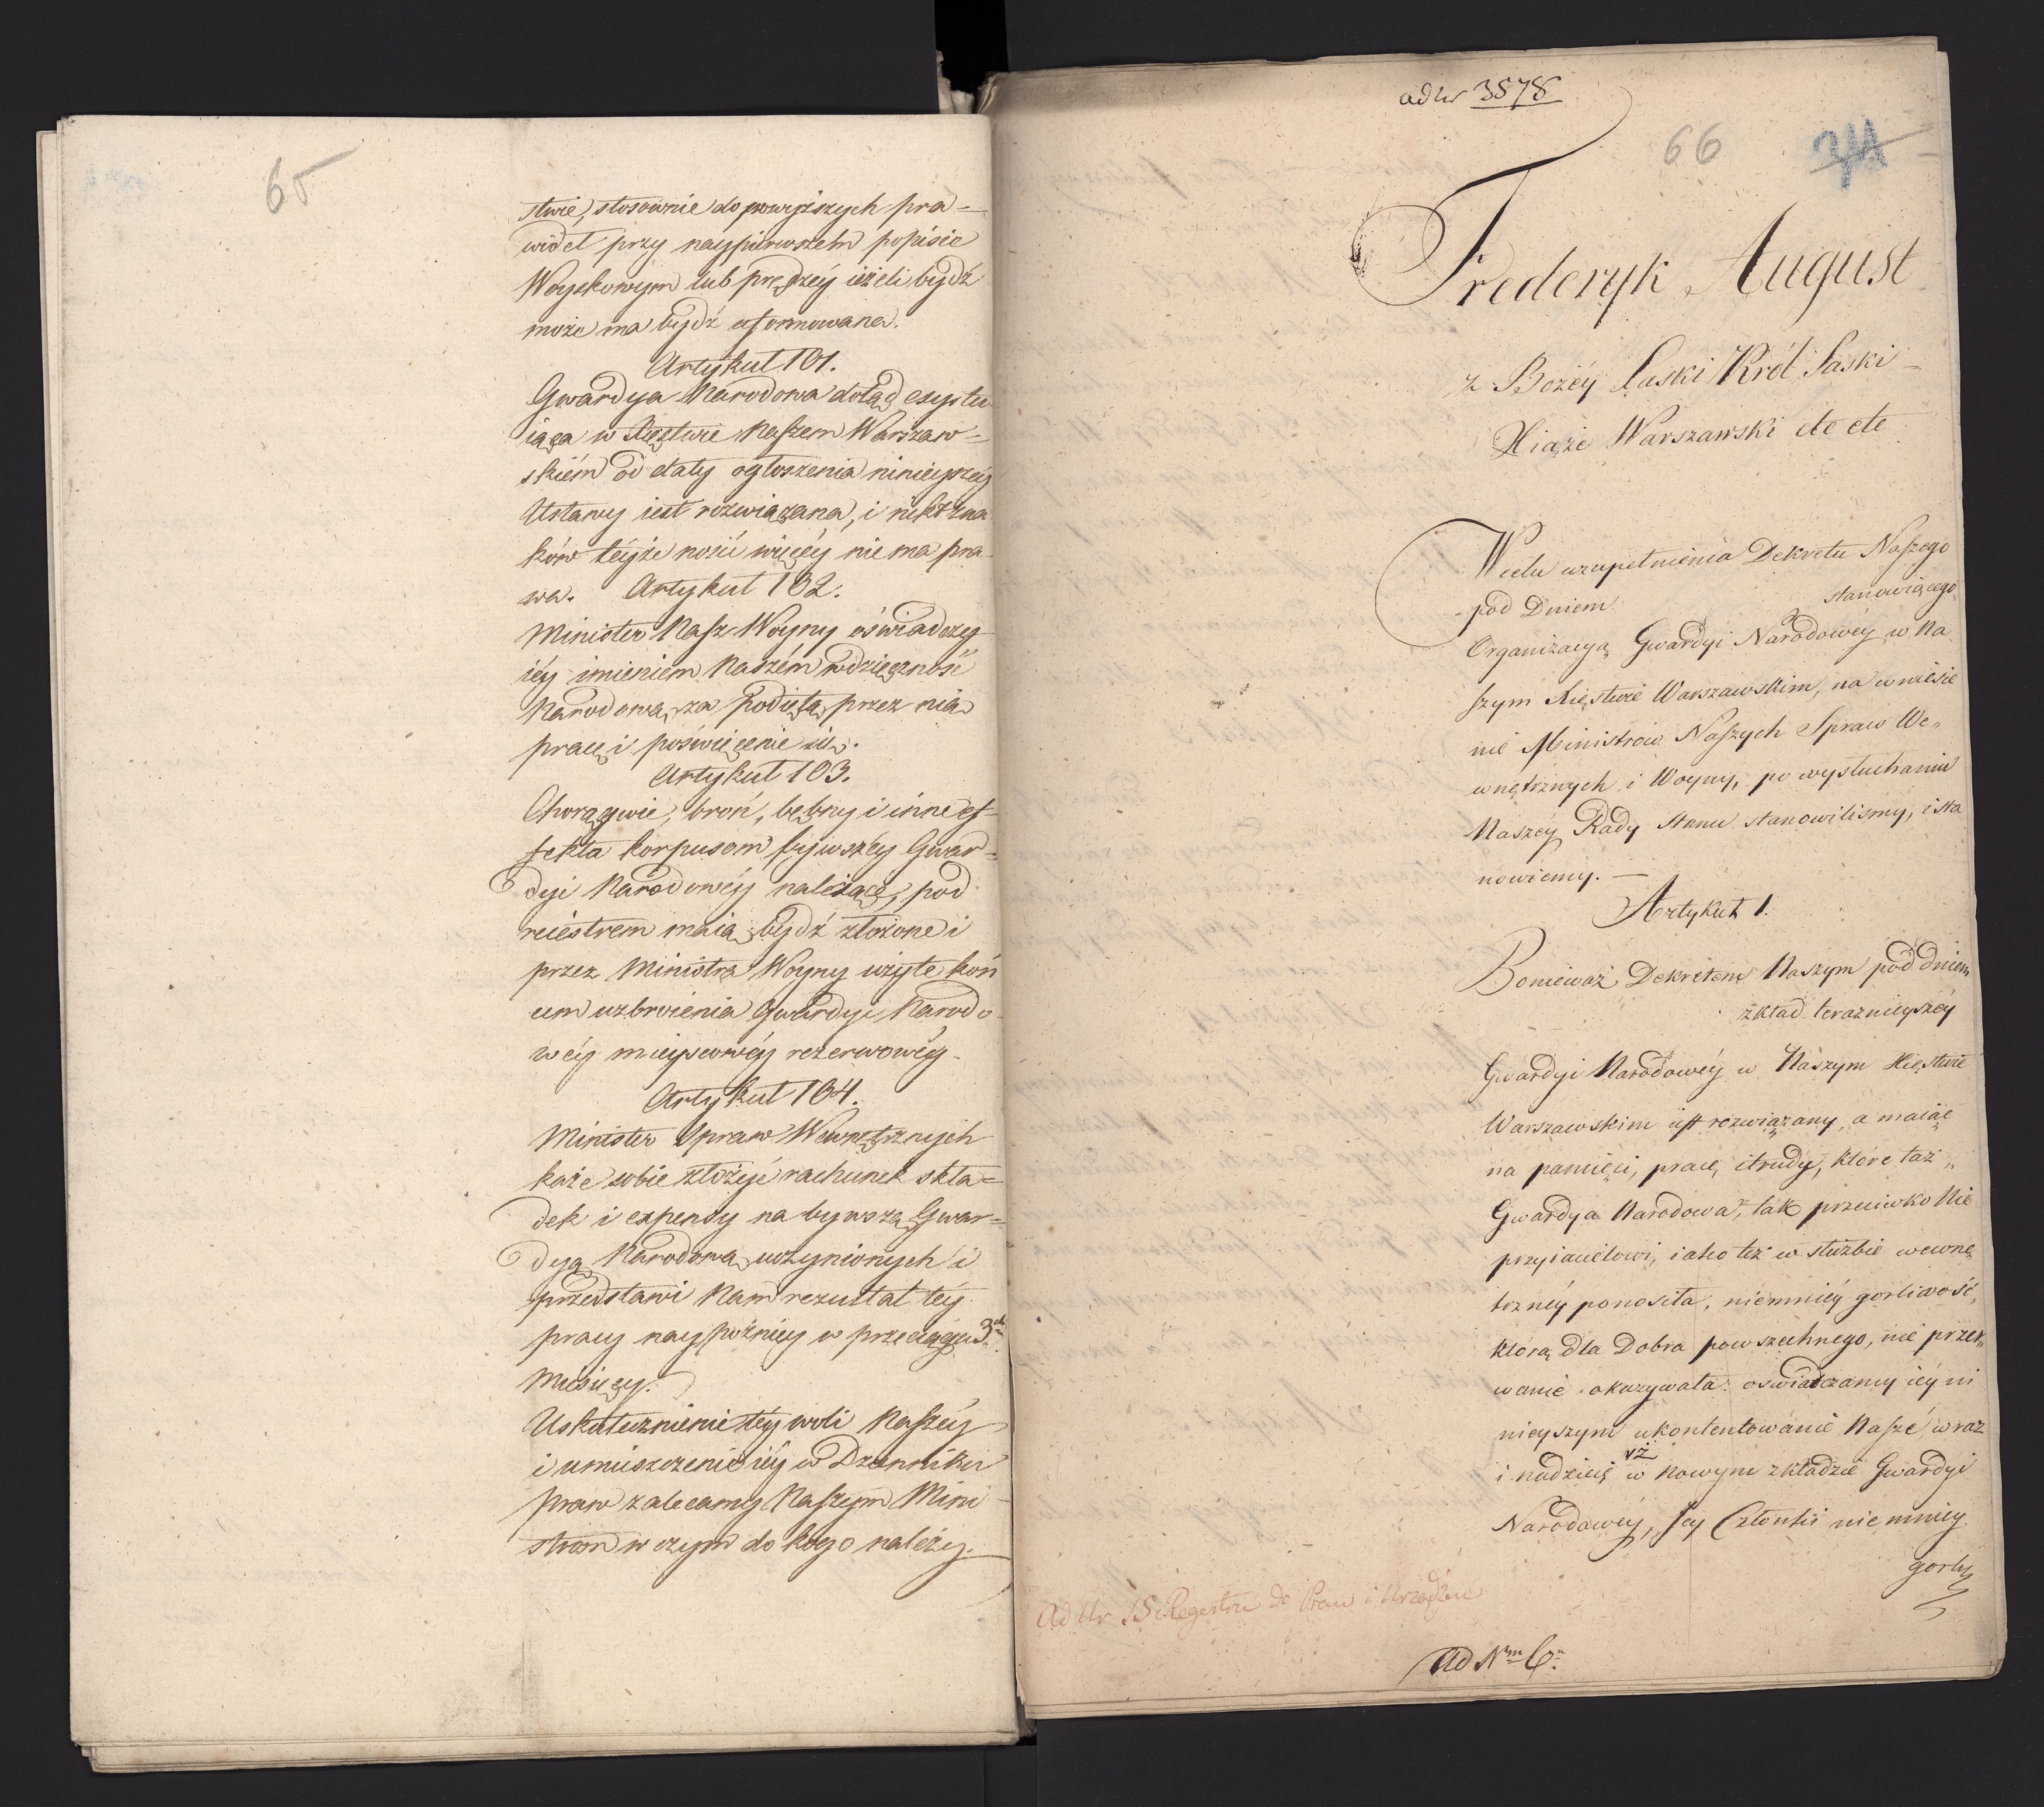 65
stwie, stosownie do powyższych pra=
wideł przy naypierwszém popisie
Woyskowym lub prędzéy ieżeli bydź
może ma bydź uformowana.
Artykuł 101.
Gwardya Narodowa dotąd exystu
iąca w Xięstwie Naszem Warszaw=
skiém od daty ogłoszenia ninieyszéy
Ustawy iest rozwiązana, i nikt zna
ków téyże nosić więcéy nie ma pra
wa. Artykuł 102.
Minister Nasz Woyny oświadczy
iéy imieniem Naszém wdzięczność
Narodową za podiętą przez nią
pracę i poświęcenie się.
Artykuł 103.
Chorągwie, broń, bębny i inne ef=
fekta korpusom bywszéy Gwar=
dyi Narodowéy należące, pod
reiestrem maią bydź złożone i
przez Ministra Woyny użyte koń
cem uzbroienia Gwardyi Narodo
wéy mieyscowéy rezerwowéy.
Artykuł 104.
Minister Spraw Wewnętrznych
każe sobie złożyć rachunek skła=
dek i expensy na bywszą Gwar=
dyą Narodową uczynionych i
przedstawi Nam rezultat téy
pracy nay późniéy w przeciągu 3ch
Miesięcy.
Uskutecznienie téy woli Naszéy
i umieszczenie iéy w Dzienniku
praw zalecamy Naszym Mini
strom w czym do kogo należy.
ad Nr 3578
66
Frederyk August
z Bożéy Łaski Król Saski
Xiąże Warszawski etc etc
W celu uzupełnienia Dekretu Naszego
pod Dniem stanowiącego
Organizacyą Gwardyi Narodowéy w Na
szym Xięstwie Warszawskim, na wniesie
nie Ministrow Naszych Spraw We„
wnętrznych i Woyny, po wysłuchaniu
Naszéy Rady Stanu stanowilismy, i sta
nowiemy. —
Artykuł 1.
Ponieważ Dekretem Naszym pod dniem
zkład teraznieyszéy
Gwardyi Narodowéy w Naszym Xięstwie
Warszawskim iest rozwiązany, a maiąc
na pamięci, pracę i trudy, które taż „
Gwardya Narodowa, tak przeciwko Nie
przyiacielowi, iako też w służbie wewnę
trznéy ponosiła, niemniéy gorliwość,
którą dla Dobra powszechnego, nie przer„
wanie okazywała: oświadczamy iéy ni
nieyszym ukontentowanie Nasze, wraz
i nadzieię iż w nowym zkładzie Gwardyi
Narodowéy, Jey Członki nie mniéy
gorli
Ad Nr 15 Regestru do Praw i Urządzen
Ad Nm 6.